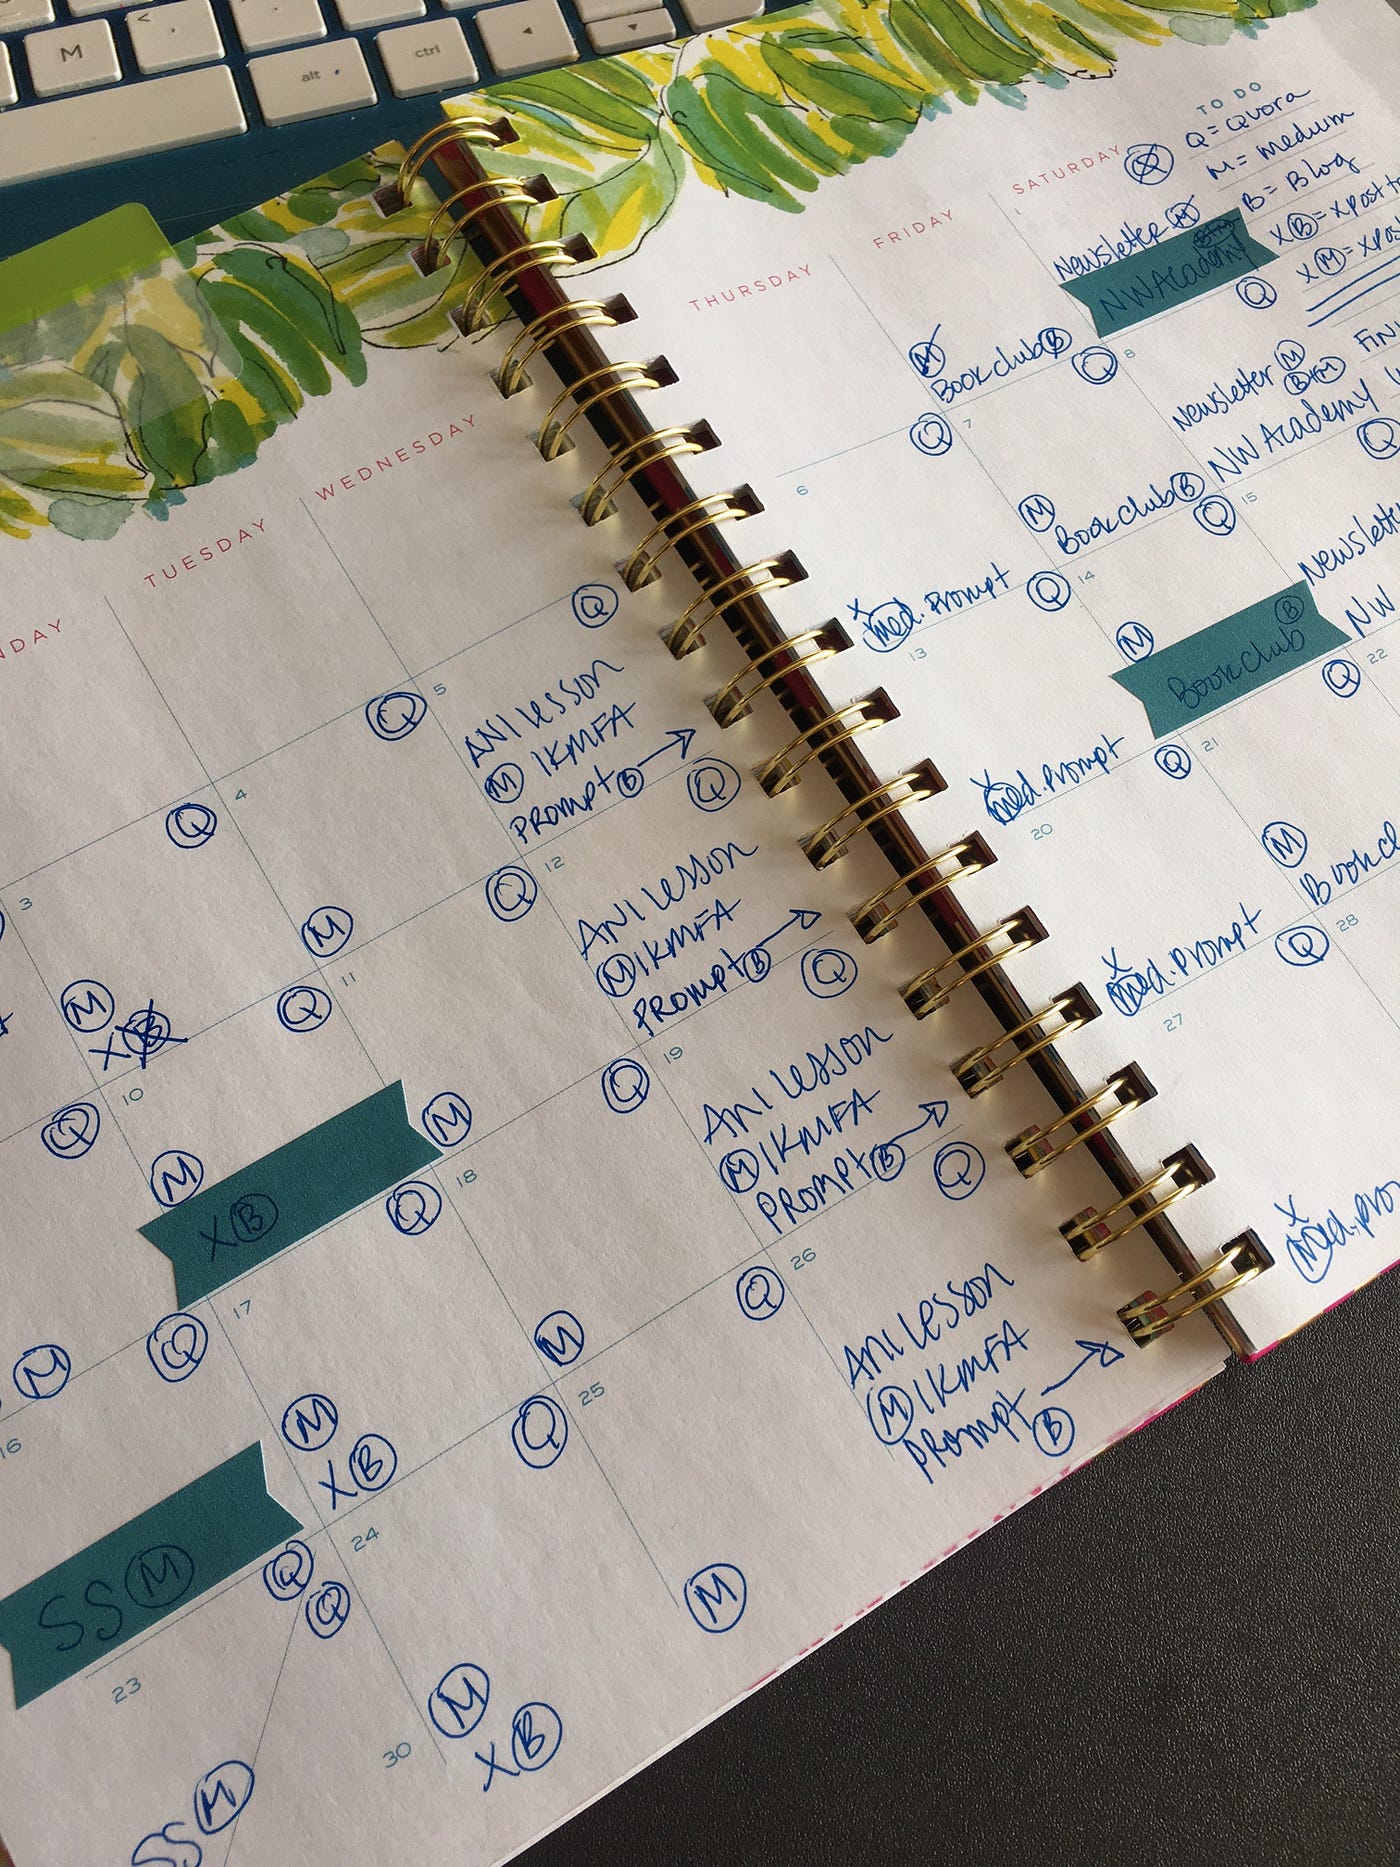 M
alt
ctrl
TO DO
Q = Quora
M = Medium
B = Blog
X B = Xpost
X M = Xpos
FIN
TUESDAY
WEDNESDAY
THURSDAY
FRIDAY
SATURDAY
1
Q
Q
Q
M
Book club B
Q
Newsletter M
B+M
NW Academy
Q
3
M
X B
Q
4
M
Q
5
ANI lesson
M IKMFA
Prompt B →
Q
6
X
med. Prompt
Q
7
M
Book club B
Q
8
Newsletter M
B+M
NW Academy
Q
10
M
X B
Q
11
M
Q
12
ANI lesson
M IKMFA
Prompt B →
Q
13
X
med. Prompt
Q
14
M
Book club B
Q
15
NW
M
Q
16
SS M
Q
17
M
X B
Q
18
M
Q
19
ANI lesson
M IKMFA
Prompt B →
Q
20
X
med. Prompt
Q
21
M
22
23
SS M
Q
Q
24
M
X B
25
M
26
ANI lesson
M IKMFA
Prompt →
B
27
X
28
30